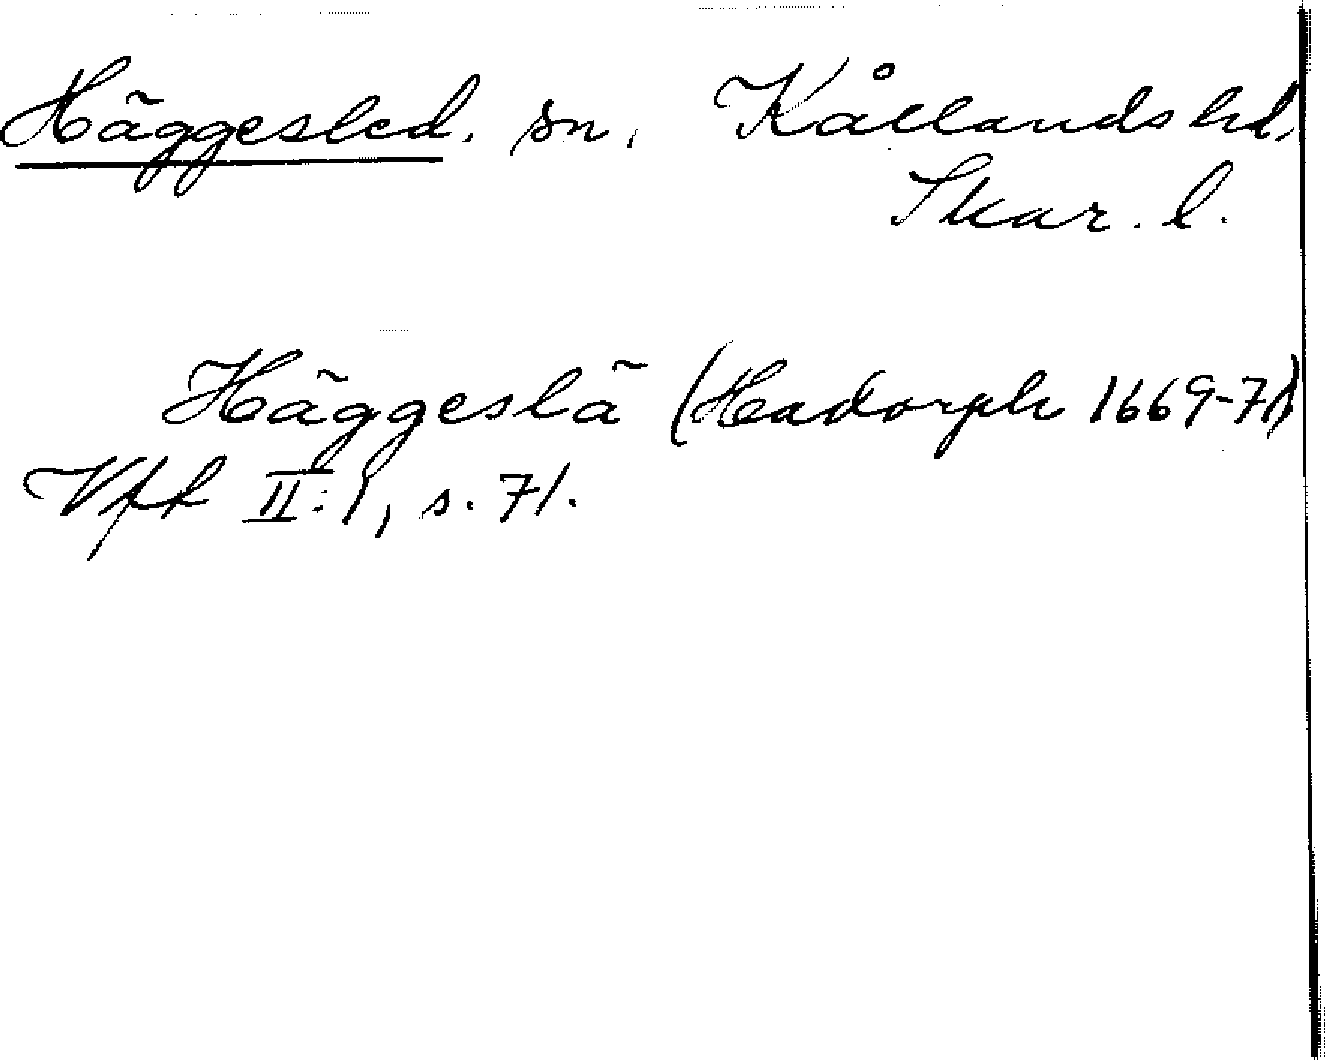 Häggesled. sn. Kållands hd.
Skar. l.
Häggeslä (Hadorph 1669-71)
Vff II:1, s. 71.